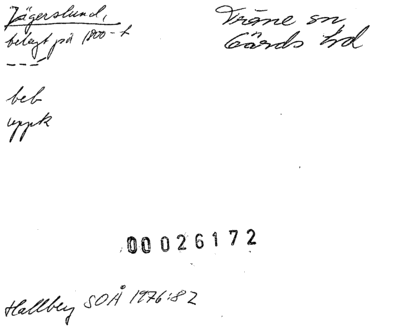 Jägerslund,
belagt på 1800-t
---
beb
uppk
Träne sn
Gärds hd
00026172
Hallberg SOÅ 1976:82